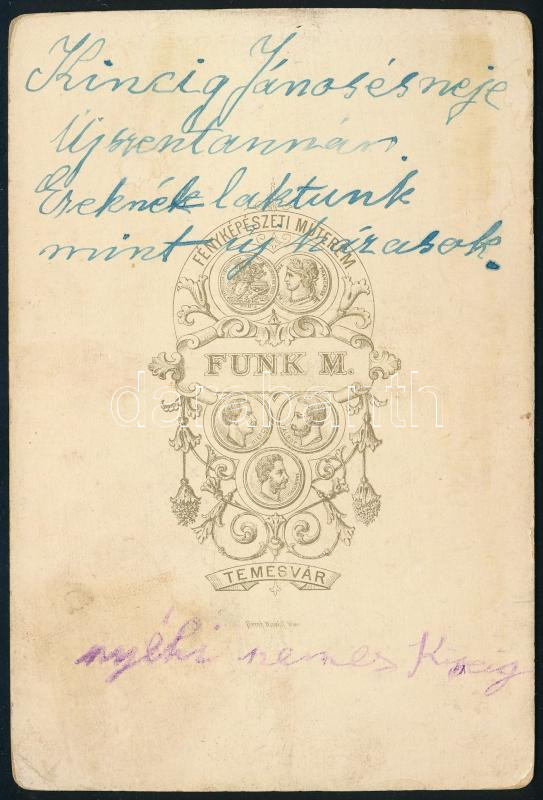 Kincig János és neje
Újszentannán
Ezeknél laktunk
mint új házasok.
FÉNYKÉPÉSZETI MŰTEREM
FUNK M.
darabanth
TEMESVÁR
nyéki nemes Kincig